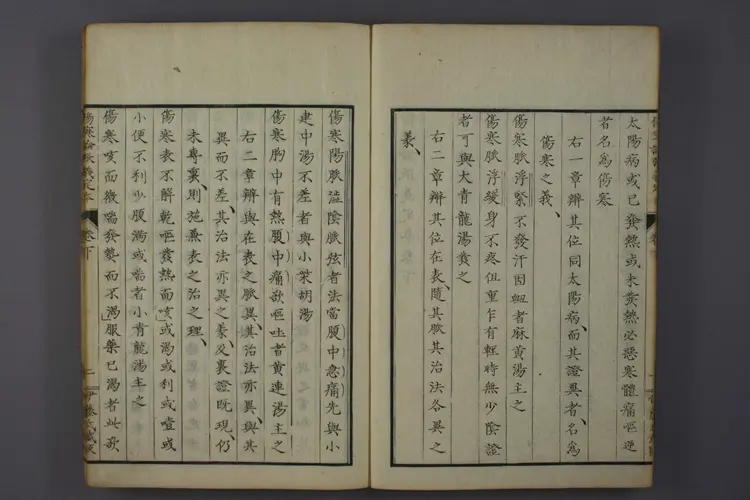 太陽病或已發熱或未發熱必惡寒體痛嘔逆
者名為傷寒
右一章辨其位同太陽病而其證異者名為
傷寒之義
傷寒脈浮緊不發汗因衄者麻黃湯主之
傷寒脈浮緩身不疼但重乍有輕時無少陰證
者可與大青龍湯發之
右二章辨其位在表隨其脈其治法各異之
義
傷寒陽脈澁陰脈弦者法當腹中急痛先與小
建中湯不差者與小柴胡湯
傷寒胸中有熱腹中痛欲嘔吐者黃連湯主之
右二章辨與在表之脈異其治法亦異與其
異而不差其治法亦異之義及裏證既現仍
未專裏則施兼表之治之理
傷寒表不解乾嘔發熱而咳或渴或利或噎或
小便不利少腹滿或喘者小青龍湯主之
傷寒咳而微喘發熱而不渴服藥已渴者此欲
卷下
二